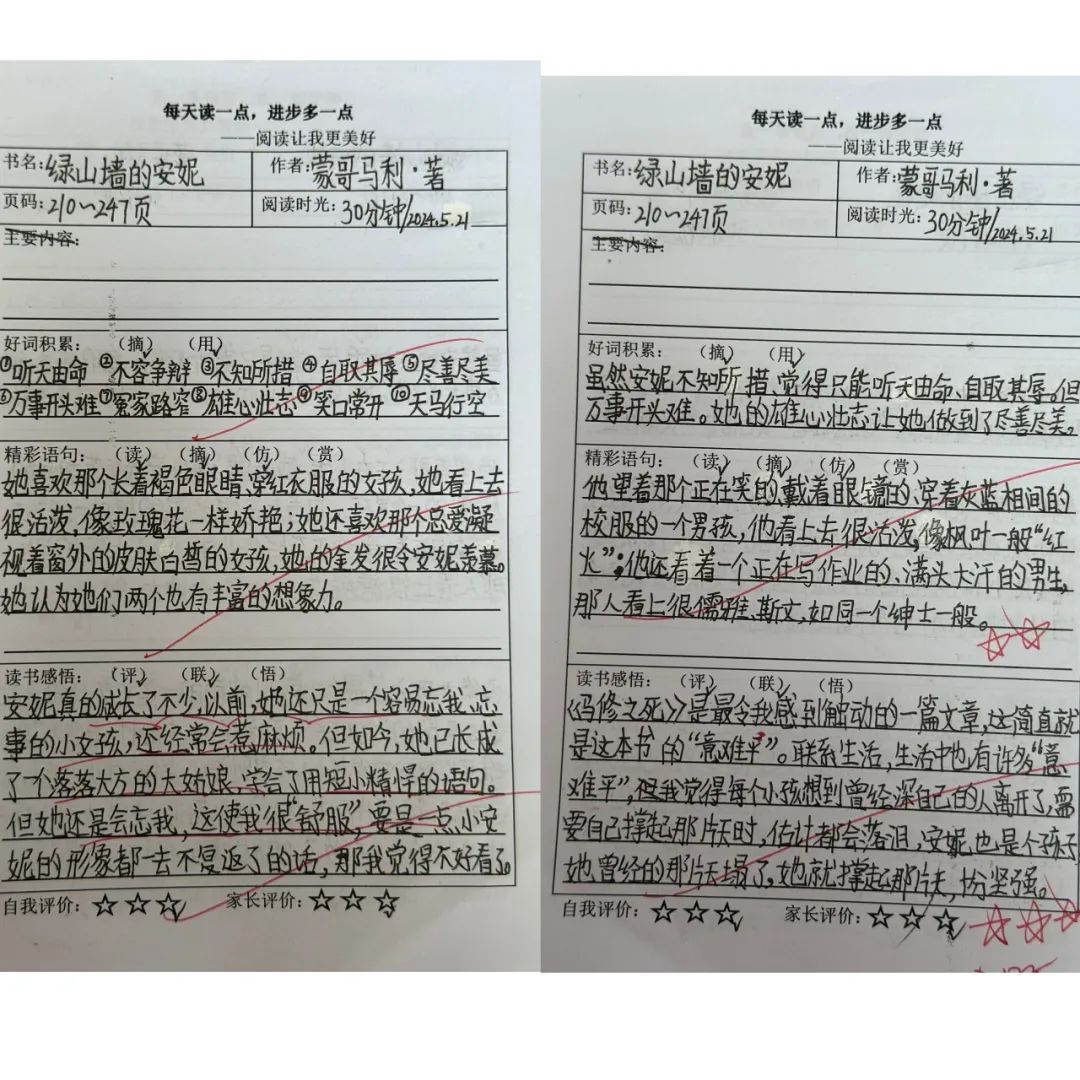 每天读一点，进步多一点
——阅读让我更美好
书名：绿山墙的安妮 作者：蒙哥马利·著
页码：210～247页 阅读时光：30分钟/2024.5.21
主要内容：
好词积累： （摘） （用）
①听天由命 ②不容争辩 ③不知所措 ④自取其辱 ⑤尽善尽美
⑥万事开头难 ⑦冤家路窄 ⑧雄心壮志 ⑨笑口常开 ⑩天马行空
精彩语句： （读） （摘） （仿） （赏）
她喜欢那个长着褐色眼睛、穿红衣服的女孩，她看上去
很活泼，像玫瑰花一样娇艳；她还喜欢那个总爱凝
视着窗外的皮肤白皙的女孩，她的金发很令安妮羡慕。
她认为她们两个也有丰富的想象力。
读书感悟： （评） （联） （悟）
安妮真的成长了不少，以前，她还只是一个容易忘我、忘
事的小女孩，还经常会惹麻烦。但如今，她已长成
了一个落落大方的大姑娘，学会了用短小精悍的语句。
但她还是会忘我，这使我很“舒服”，要是一点小安
妮的形象都一去不复返了的话，那我觉得不好看了。
自我评价：☆ ☆ ☆ 家长评价：☆ ☆ ☆
每天读一点，进步多一点
——阅读让我更美好
书名：绿山墙的安妮 作者：蒙哥马利·著
页码：210～247页 阅读时光：30分钟/2024.5.21
主要内容：
好词积累： （摘） （用）
虽然安妮不知所措、觉得只能听天由命、自取其辱。但
万事开头难。她的雄心壮志让她做到了尽善尽美。
精彩语句： （读） （摘） （仿） （赏）
他望着那个正在笑的、戴着眼镜的、穿着灰蓝相间的
校服的一个男孩，他看上去很活泼，像枫叶一般“红
火”；他还看着一个正在写作业的、满头大汗的男生，
那人看上很儒雅、斯文，如同一个绅士一般。
读书感悟： （评） （联） （悟）
《马修之死》是最令我感到触动的一篇文章，这简直就
是这本书的“意难平”。联系生活，生活中也有许多“意
难平”，但我觉得每个小孩想到曾经深自己的人离开了，需
要自己撑起那片天时，估计都会落泪，安妮也是个孩子，
她曾经的那片天塌了，她就撑起那片天，扮坚强。
自我评价：☆ ☆ ☆ 家长评价：☆ ☆ ☆